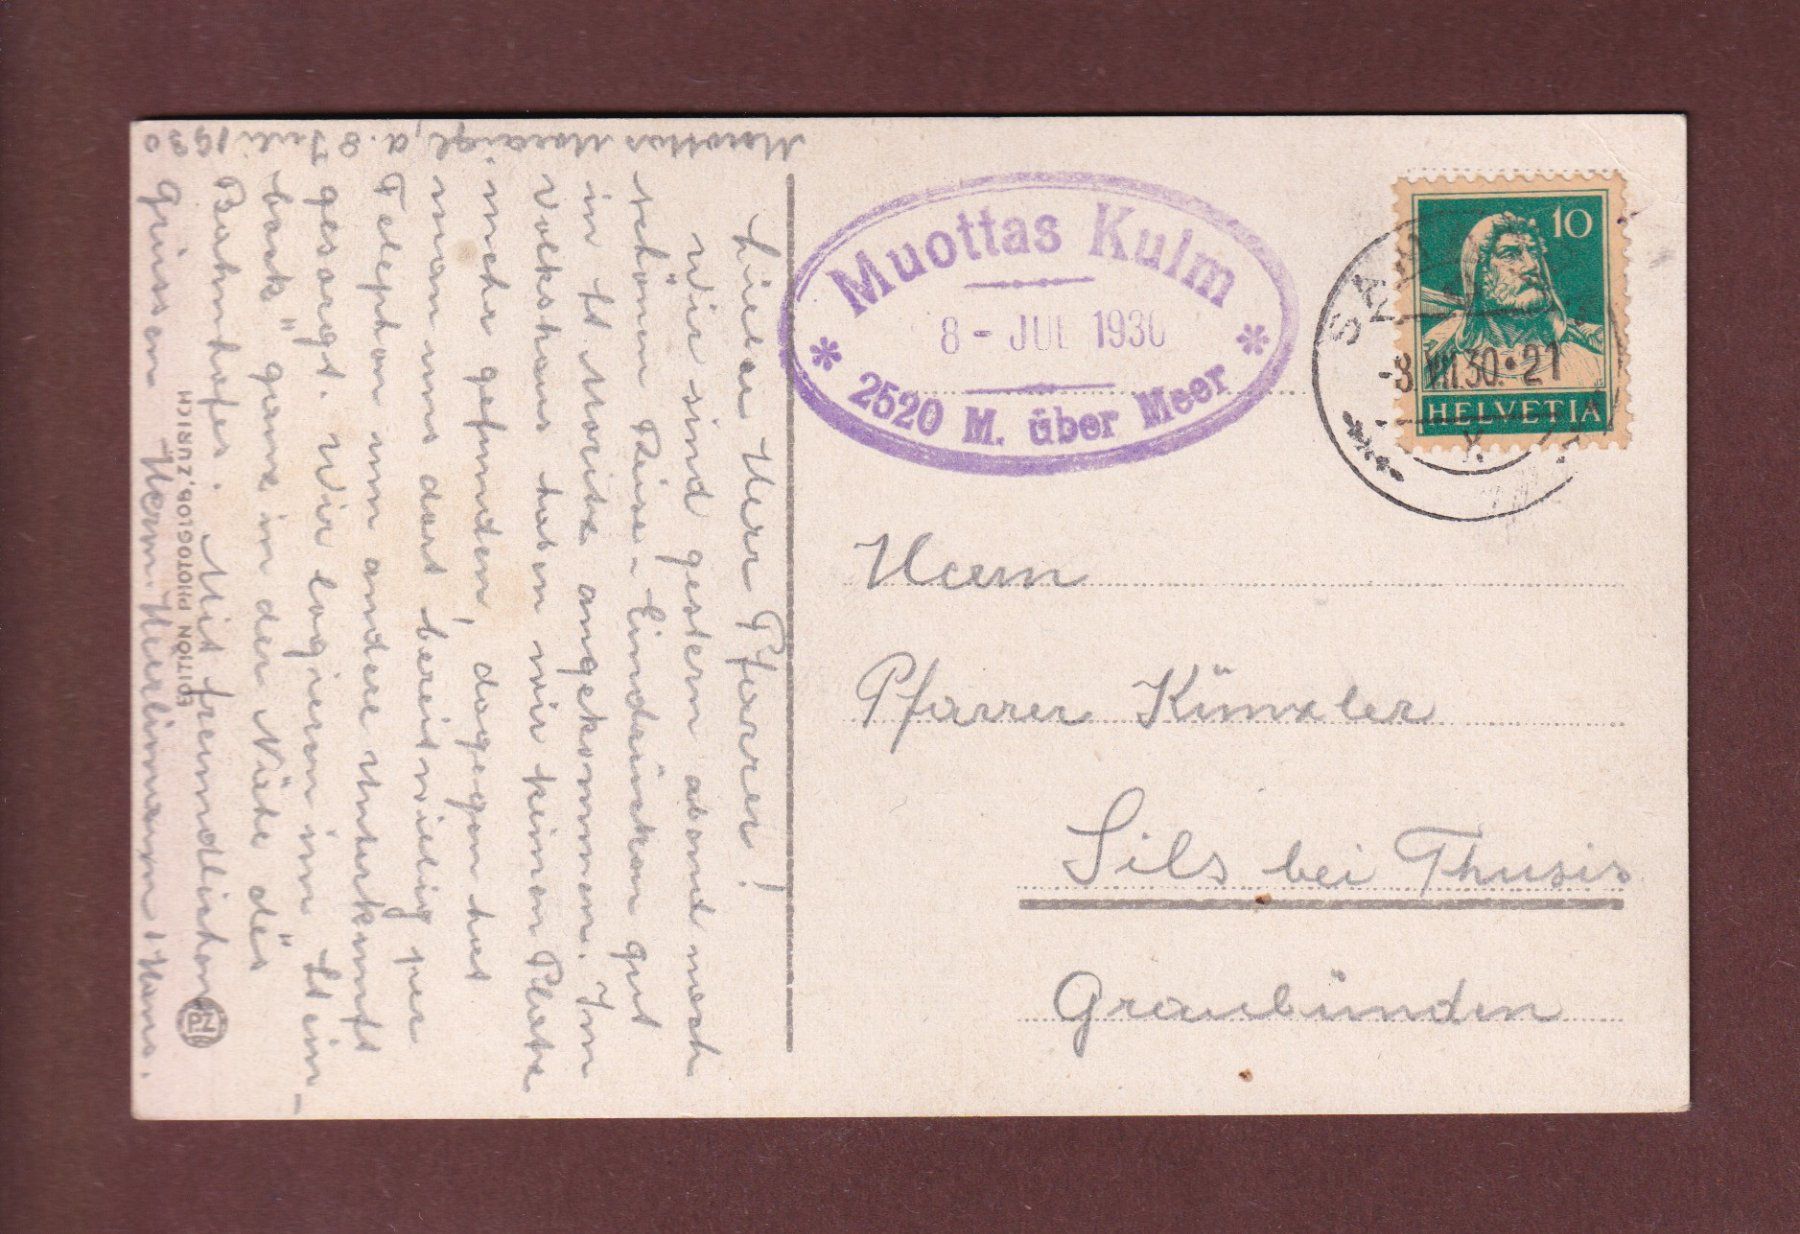 Muottas Muraigl, d. 8 Juli 1930
Lieber Herr Pfarrer!
Wir sind gestern abend nach
schönen Reise-Eindrücken gut
in St. Moritz angekommen. Im
Volkshaus haben wir keinen Platz
mehr gefunden, dagegen hat
man uns dort bereitwillig per
Telephon um andere Unterkunft
gesorgt. Wir logieren im „Stein-
bock" ganz in der Nähe des
Bahnhofes. Mit freundlichen
Grüssen Herm. Hürlimann, Hans.
EDITION PHOTOGLOB, ZÜRICH
PZ
Muottas Kulm
8 - JUL 1930
2520 M. über Meer
10
HELVETIA
-8.VII.30.-21
Herrn
Pfarrer Künzler
Sils bei Thusis
Graubünden